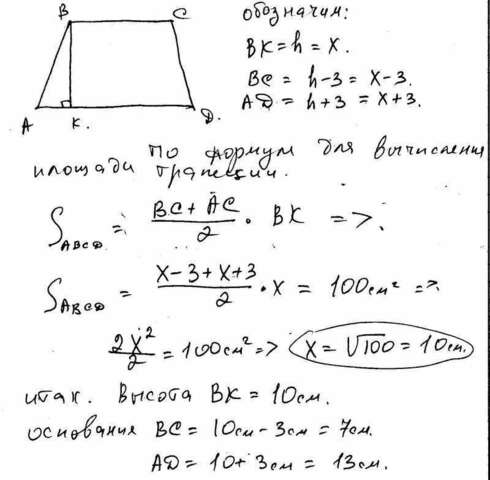 B C
A K. D.
обозначим:
BK = h = x.
BC = h-3 = x-3.
AD = h+3 = x+3.
По формул для вычислени
площади трапеции.
S_ABCD = (BC + AC)/2 · BK =>.
S_ABCD = (x-3+x+3)/2 · x = 100см² =>
2x²/2 = 100см² => x = √100 = 10см.
итак. Высота BK = 10см.
основания BC = 10см - 3см = 7см.
AD = 10 + 3см = 13см.